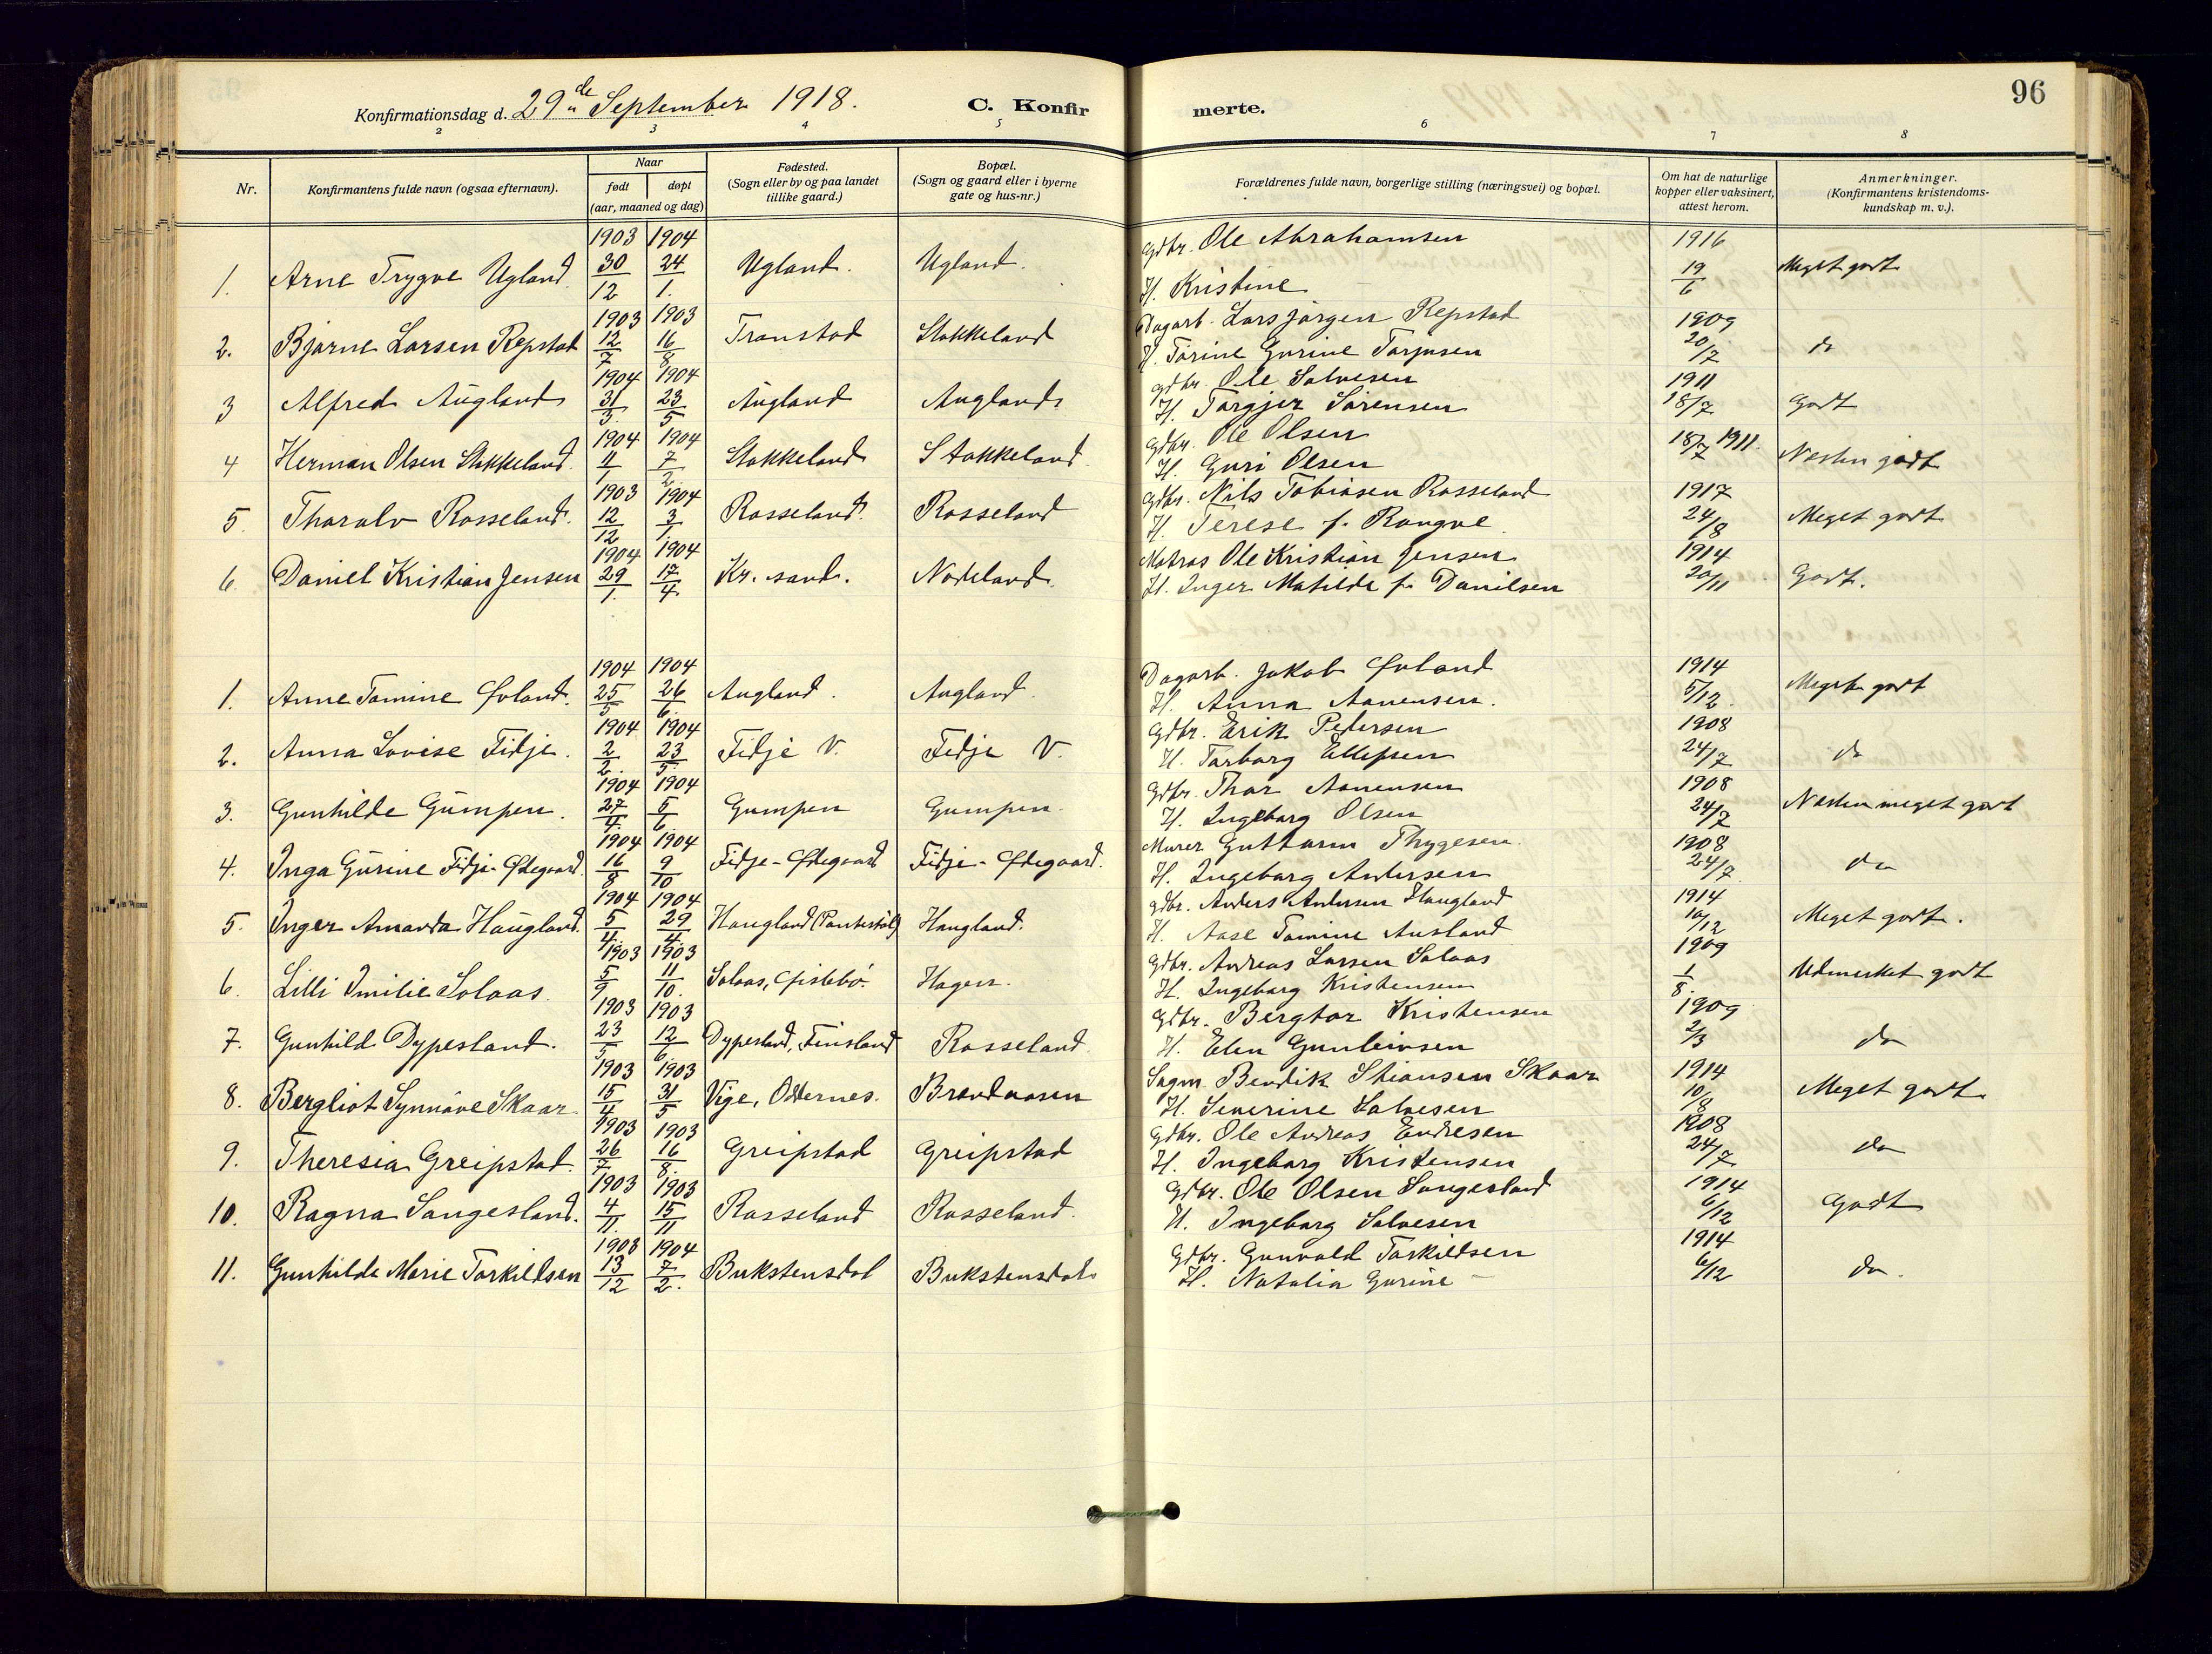 96
Konfirmationsdag d. 29de September 1918.
C. Konfirmerte.
2 3 4 5 6 7 8
Nr. Konfirmantens fulde navn (ogsaa efternavn). Naar født døpt (aar, maaned og dag) Fødested. (Sogn eller by og paa landet tillike gaard.) Bopæl. (Sogn og gaard eller i byerne gate og hus-nr.) Forældrenes fulde navn, borgerlige stilling (næringsvei) og bopæl. Om hat de naturlige kopper eller vaksinert, attest herom. Anmerkninger. (Konfirmantens kristendomskundskap m. v.).
1. Arne Trygve Ugland 1903 30/12 1904 24/1. Ugland. Ugland. Gdbr. Ole Abrahamsen H. Kristine 1916 19/6 Meget godt
2. Bjarne Larsen Repstad 1903 12/7 1903 16/8 Tronstad Stokkeland Dagarb. Lars Jørgen Repstad H. Torine Gurine Torjusen 1909 20/7 do
3 Alfred Augland 1904 31/3 1904 23/5 Augland Augland Gdbr. Ole Salvesen H. Torgjer Sørensen 1911 18/7 Godt
4 Herman Olsen Stokkeland. 1904 11/1 1904 7/2. Stokkeland Stokkeland Gdbr. Ole Olsen H. Guri Olsen 18/7 1911. Næsten godt
5. Tharalv Rosseland. 1903 12/12 1904 3/1. Rosseland. Rosseland Gdbr. Nils Tobiasen Rosseland H. Terese f. Rougne 1917 24/8 Meget godt
6. Daniel Kristian Jensen 1904 29/1. 1904 17/4. Kr. sand. Nodeland. Matros Ole Kristian Jensen H. Inger Matilde f. Danilsen 1914 20/11 Godt.
1. Anne Tomine Øvland. 1904 25/5 1904 26/6. Augland. Augland. Dagarb. Jakob Øvland H. Anna Aanensen. 1914 5/12. Meget godt
2. Anna Lovise Fidje. 1904 2/2. 1904 23/5. Fidje V. Fidje V. Gdbr. Erik Pedersen H. Torborg Ellefsen 1908 24/7 do
3. Gunhilde Gumpen. 1904 27/4. 1904 5/6. Gumpen Gumpen. Gdbr. Thor Aanensen H. Ingeborg Olsen 1908 24/7 Næsten meget godt
4. Inga Gurine Fidje-Ødegaard. 1904 16/8 1904 9/10 Fidje-Ødegaard Fidje-Ødegaard. Murer Guttorm Thygesen. H. Ingeborg Andersen 1908 24/7. do
5. Inger Amanda Haugland. 1904 5/4. 1904 29/4. Haugland Haugland. Gdbr. Anders Andersen Haugland H. Aase Tomine Ausland 1914 10/12 Meget godt.
6. Lilli Emilie Solaas. 1903 5/9 1903 11/10. Solaas, Øislebø. Hagen. Gdbr. Andreas Larsen Solaas H. Ingeborg Kristensen 1909 1/8. Udmerket godt
7. Gunhild Dypesland. 1903 23/5 1903 12/6. Dypesland, Finsland Rosseland. Gdbr. Bergtor Kristensen H. Elen Gunleivsen 1909 2/3 do
8. Bergliot Synnøve Skaar. 1903 15/4 1903 31/5 Vige, Oddernes. Brendaasen Sagm. Bendik Stiansen Skaar H. Severine Salvesen 1914 10/8 Meget godt.
9. Theresia Greipstad. 1903 26/7 1903 16/8. Greipstad Greipstad Gdbr. Ole Andreas Endresen H. Ingeborg Kristensen 1908 24/7 do
10. Ragna Sangesland. 1903 4/11. 1903 15/11 Rosseland Rosseland. Gdbr. Ole Olsen Sangesland H. Ingeborg Salvesen 1914 6/12 Godt
11. Gunhilde Marie Torkildsen 1903 13/12 1904 7/2. Bukstensdal Bukstensdal Gdbr. Gunvald Torkildsen H. Natalia Gurine 1914 6/12 do.